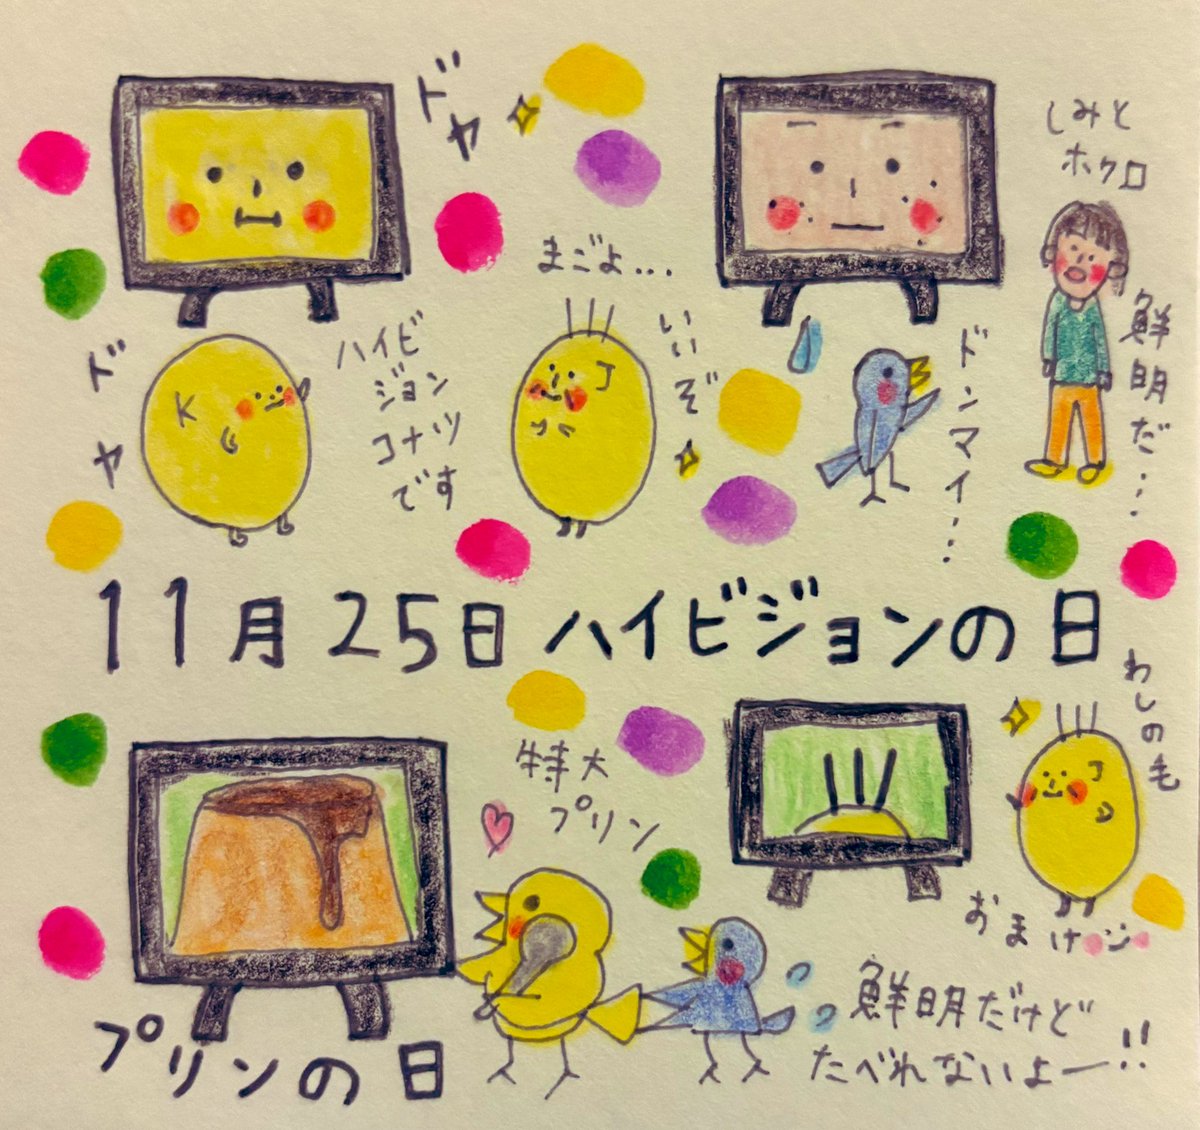 ドヤ
しみと
ホクロ
まごよ...
いいぞ
ハイビ
ジョン
コナツ
です
ドヤ
K
J
ドンマイ...
鮮明だ...
11月25日ハイビジョンの日
わしの毛
特大
プリン
J
おまけ
鮮明だけど
たべれないよー!!
プリンの日